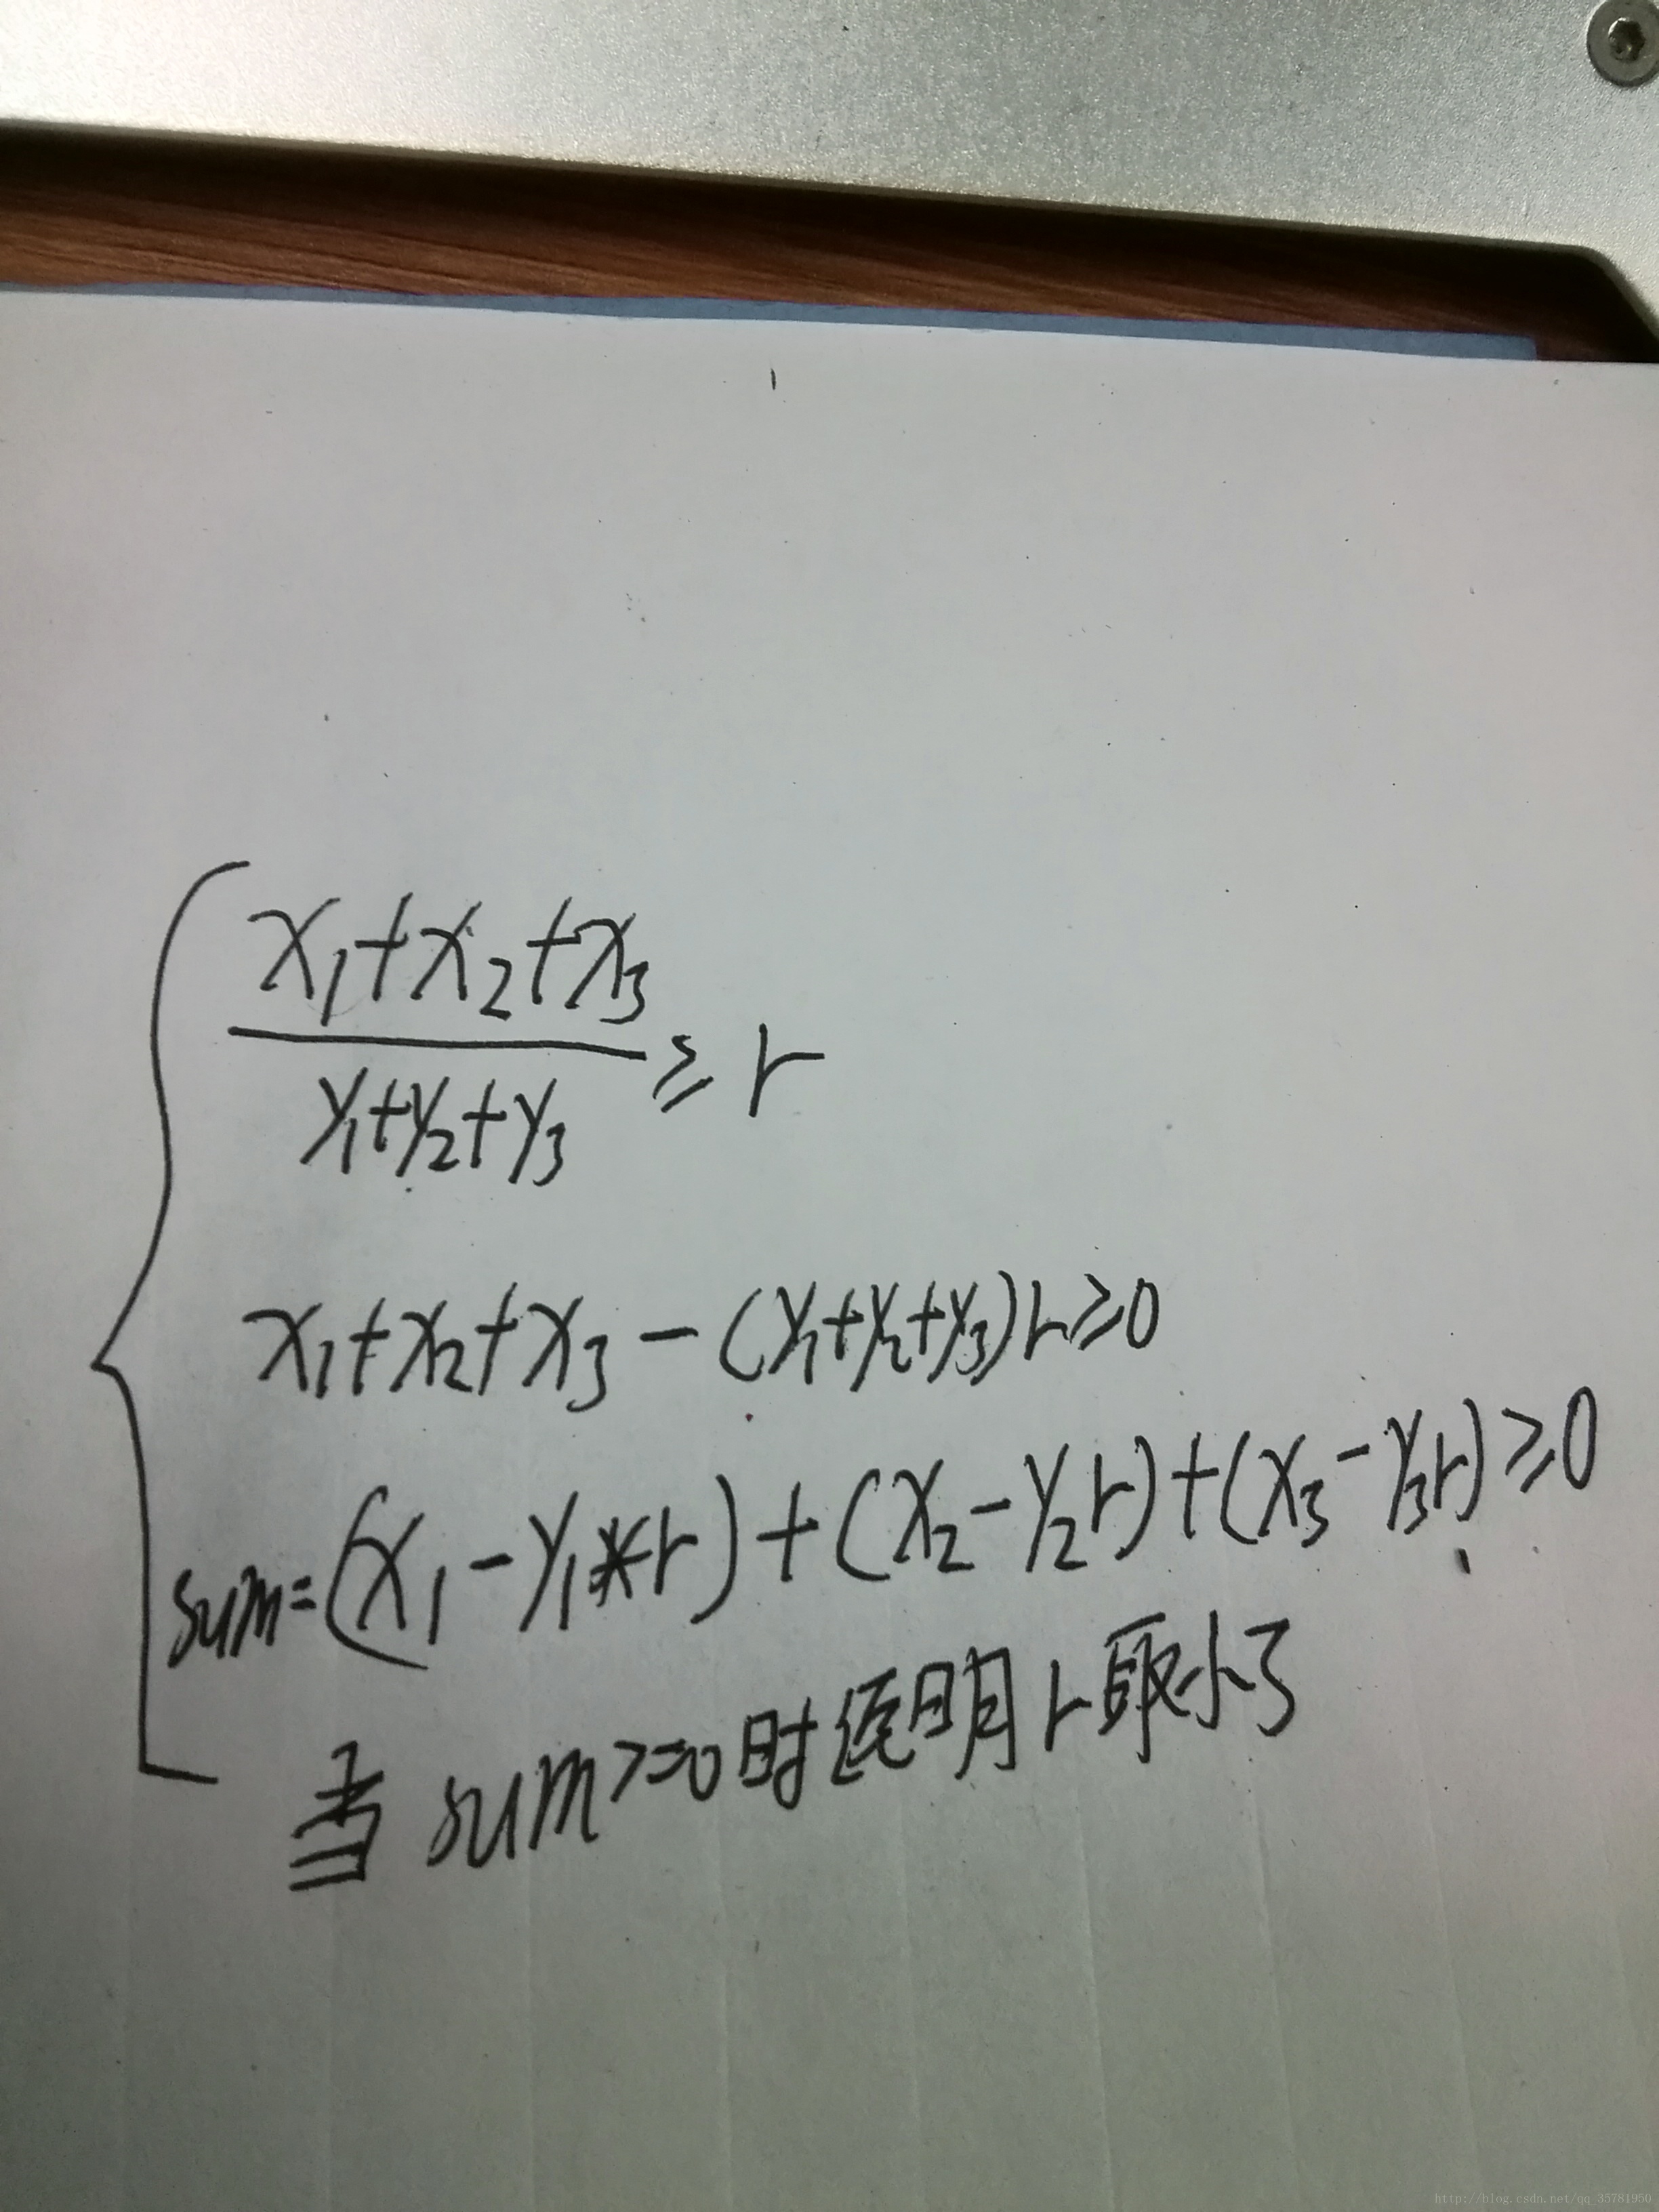 x₁+x₂+x₃
y₁+y₂+y₃
≥ r
x₁+x₂+x₃ - (y₁+y₂+y₃)r≥0
sum=(x₁-y₁*r)+(x₂-y₂r)+(x₃-y₃r)≥0
当 sum>=0时证明r取小了
http://blog.csdn.net/qq_35781950